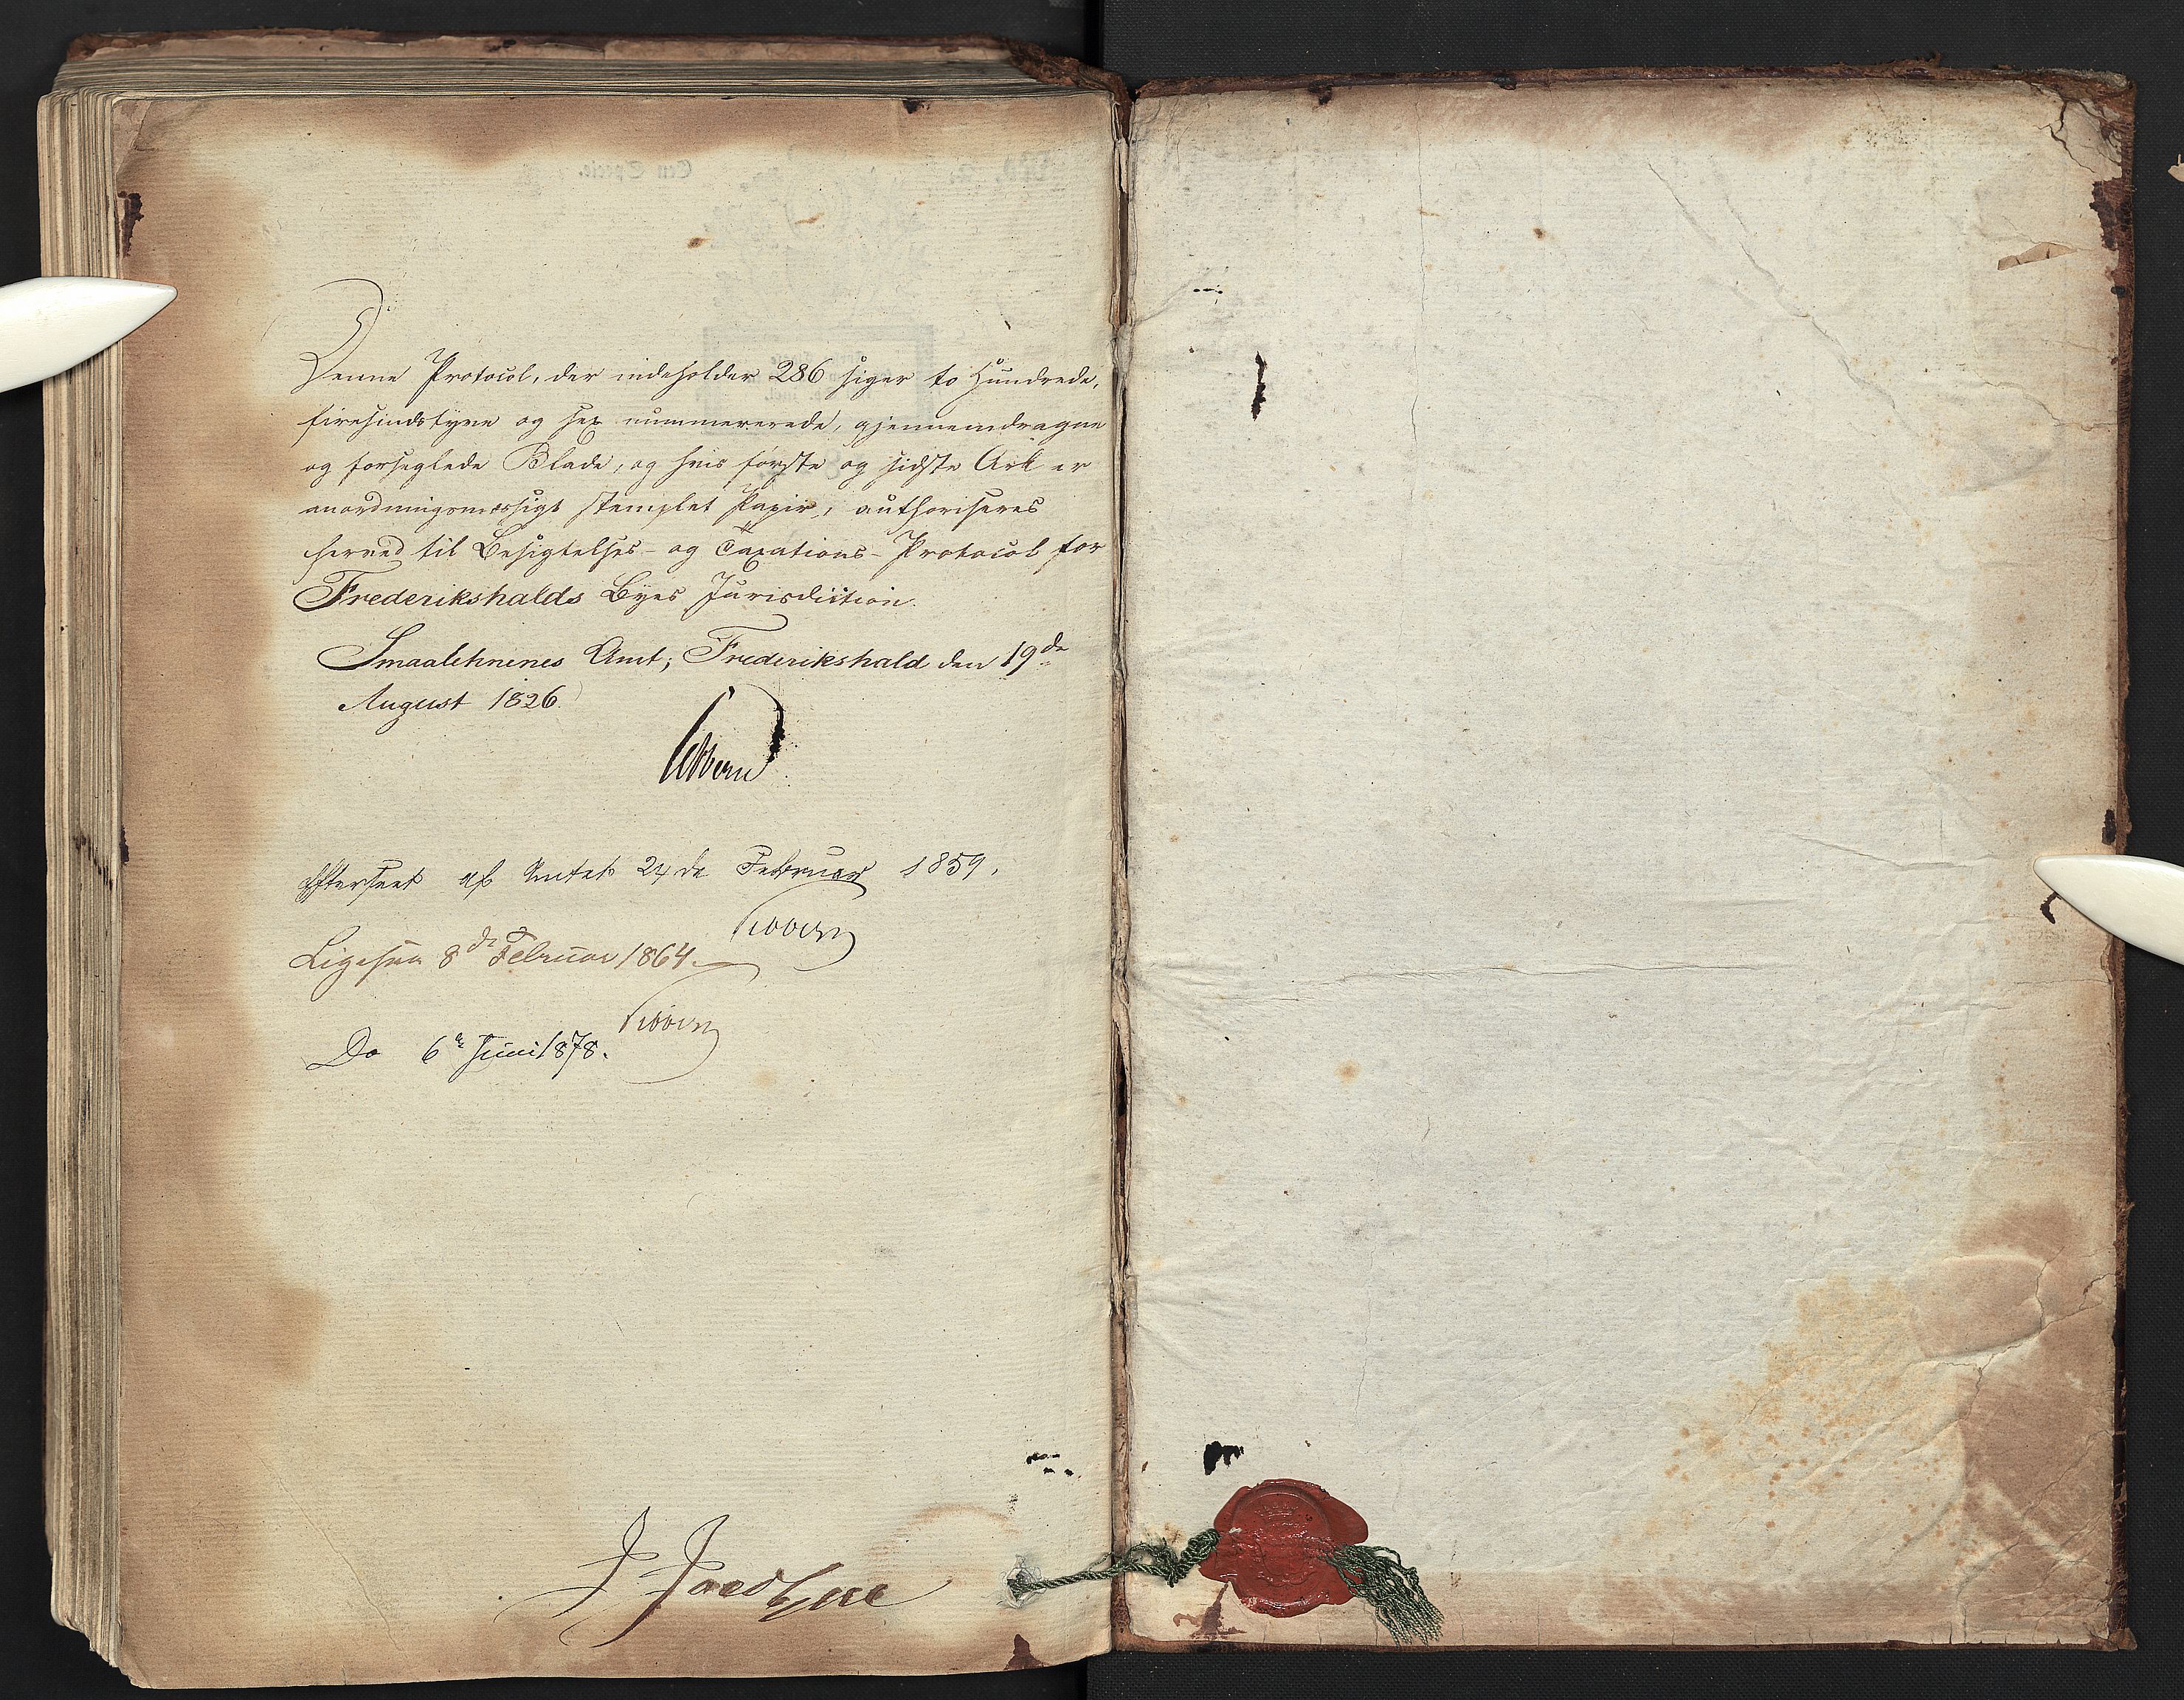 Denne Protocol, der indeholder 286 siger to Hundrede,
firesindstyve og sex nummererede, gjennemdragne
og forseglede Blade, og hvis første og sidste Ark er
anordningsmæssigt stemplet Papir, authoriseres
herved til Besigtelses- og Taxations-Protocol for
Frederikshalds Byes Jurisdiction.
Smaalehnenes Amt; Frederikshald den 19de
August 1826.
Sibbern
Efterseet af Amtet 24de Februar 1859.
Sibbern
Ligesaa 8de Februar 1864.
Sibbern
Do 6te Juni 1878.